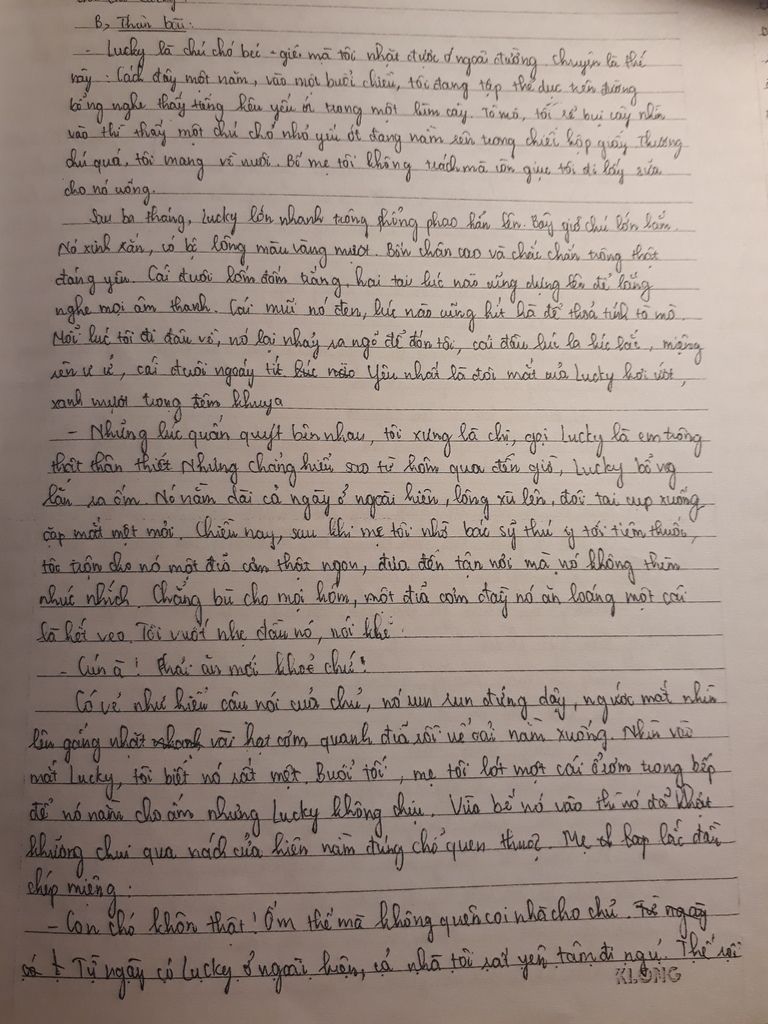 B, Thân bài:
- Lucky là chú chó bec - giê mà tôi nhặt được ở ngoài đường. Chuyện là thế
này : Cách đây một năm, vào một buổi chiều, tôi đang tập thể dục trên đường
bỗng nghe thấy tiếng kêu yếu ớt trong một lùm cây. Tò mò, tôi rẽ bụi cây nhìn
vào thì thấy một chú chó nhỏ yếu ớt đang nằm rên trong chiếc hộp giấy. Thương
chú quá, tôi mang về nuôi. Bố mẹ tôi không trách mà còn giục tôi đi lấy sữa
cho nó uống.
Sau ba tháng, Lucky lớn nhanh trông phổng phao hẳn lên. Bây giờ chú lớn lắm.
Nó xinh xắn, có bộ lông màu vàng mượt. Bốn chân cao và chắc chắn trông thật
đáng yêu. Cái đuôi lốm đốm trắng, hai tai lúc nào cũng dựng lên để lắng
nghe mọi âm thanh. Cái mũi nó đen, lúc nào cũng hít hà để thoả tính tò mò.
Mỗi lúc tôi đi đâu về, nó lại nhảy ra ngõ để đón tôi, cái đầu lúc la lúc lắc, miệng
rên ư ử, cái đuôi ngoáy tít. lúc nào Yêu nhất là đôi mắt của Lucky hơi ướt,
xanh mượt trong đêm khuya
- Những lúc quấn quýt bên nhau, tôi xưng là chị, gọi Lucky là em trông
thật thân thiết Nhưng chẳng hiểu sao từ hôm qua đến giờ, Lucky bỗng
lăn ra ốm. Nó nằm dài cả ngày ở ngoài hiên, lông xù lên, đôi tai cụp xuống
cặp mắt mệt mỏi. Chiều nay, sau khi mẹ tôi nhờ bác sỹ thú y tới tiêm thuốc,
tôi trộn cho nó một đĩa cơm thật ngon, đưa đến tận nơi mà nó không thèm
nhúc nhích. Chẳng bù cho mọi hôm, một đĩa cơm đầy nó ăn loáng một cái
là hết veo. Tôi vuốt nhẹ đầu nó, nói khẽ :
- Cún à ! Phải ăn mới khoẻ chứ !
Có vẻ như hiểu câu nói của chủ, nó run run đứng dậy, ngước mắt nhìn
lên gắng nhặt nhanh vài hạt cơm quanh đĩa rồi uể oải nằm xuống. Nhìn vào
mắt Lucky, tôi biết nó rất mệt. Buổi tối, mẹ tôi lót một cái ổ rơm trong bếp
để nó nằm cho ấm nhưng Lucky không chịu. Vừa bế nó vào thì nó đã
khường chui qua nách cửa hiên nằm đúng chỗ quen thuộc. Mẹ lắc đầu
chép miệng :
- Con chó khôn thật ! Ốm thế mà không quên coi nhà cho chủ. Từ ngày
có Từ ngày có Lucky ở ngoài hiên, cả nhà tôi rất yên tâm đi ngủ. Thế rồi
KLONG